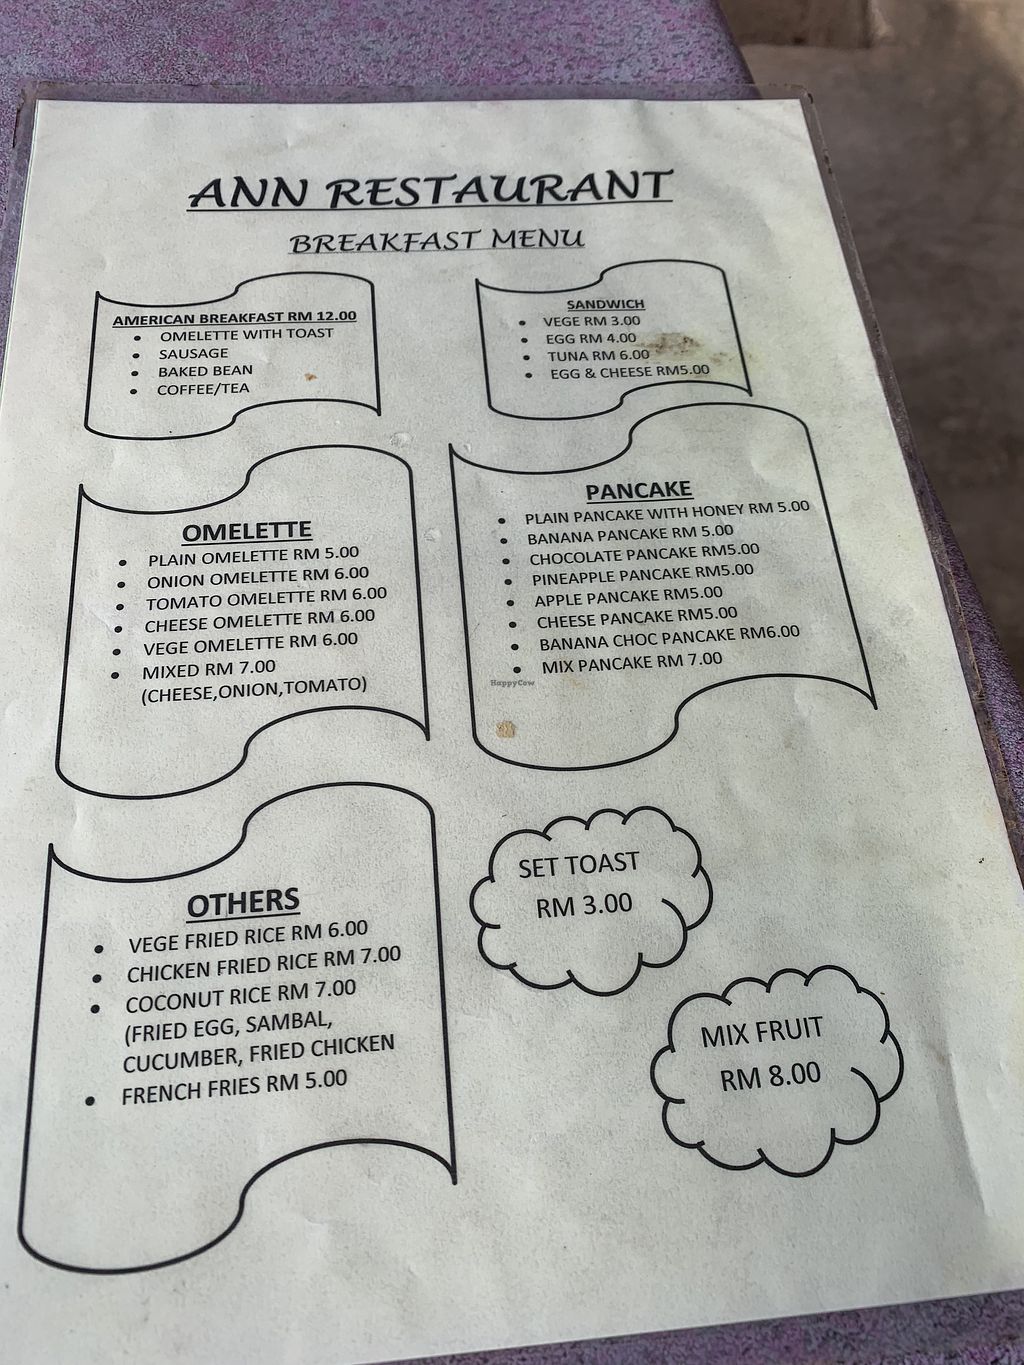 ANN RESTAURANT
BREAKFAST MENU
AMERICAN BREAKFAST RM 12.00
• OMELETTE WITH TOAST
• SAUSAGE
• BAKED BEAN
• COFFEE/TEA
SANDWICH
• VEGE RM 3.00
• EGG RM 4.00
• TUNA RM 6.00
• EGG & CHEESE RM5.00
OMELETTE
• PLAIN OMELETTE RM 5.00
• ONION OMELETTE RM 6.00
• TOMATO OMELETTE RM 6.00
• CHEESE OMELETTE RM 6.00
• VEGE OMELETTE RM 6.00
• MIXED RM 7.00
(CHEESE,ONION,TOMATO)
PANCAKE
• PLAIN PANCAKE WITH HONEY RM 5.00
• BANANA PANCAKE RM 5.00
• CHOCOLATE PANCAKE RM5.00
• PINEAPPLE PANCAKE RM5.00
• APPLE PANCAKE RM5.00
• CHEESE PANCAKE RM5.00
• BANANA CHOC PANCAKE RM6.00
• MIX PANCAKE RM 7.00
HappyCow
OTHERS
• VEGE FRIED RICE RM 6.00
• CHICKEN FRIED RICE RM 7.00
• COCONUT RICE RM 7.00
(FRIED EGG, SAMBAL,
CUCUMBER, FRIED CHICKEN
• FRENCH FRIES RM 5.00
SET TOAST
RM 3.00
MIX FRUIT
RM 8.00